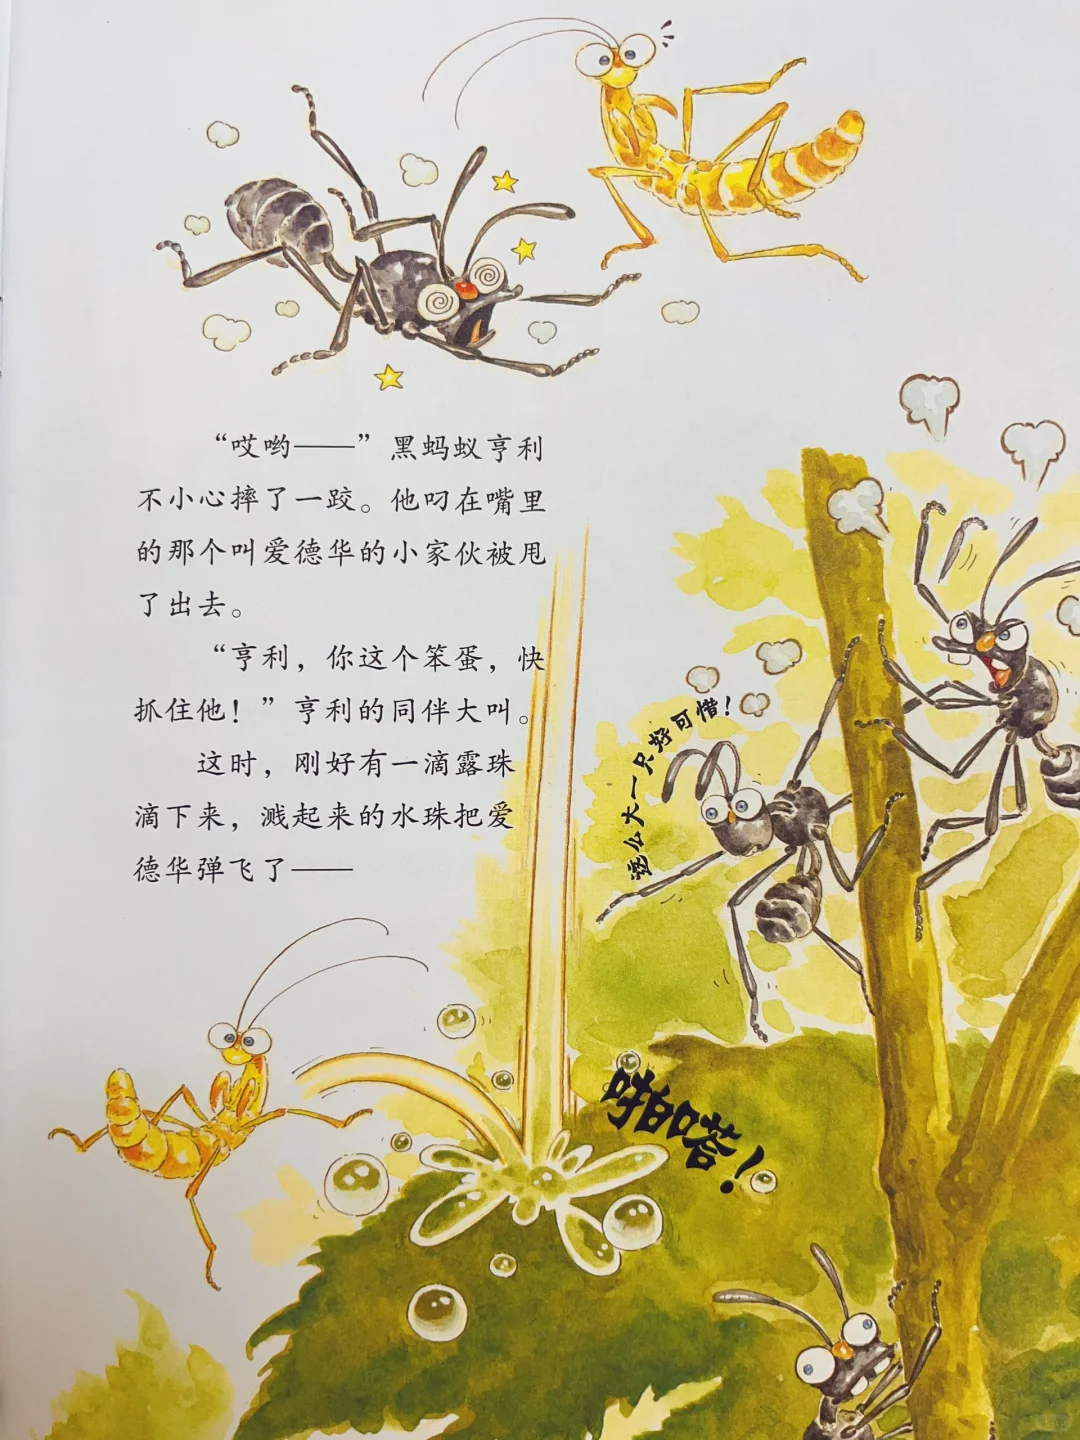 “哎哟——”黑蚂蚁亨利
不小心摔了一跤。他叼在嘴里
的那个叫爱德华的小家伙被甩
了出去。
“亨利，你这个笨蛋，快
抓住他！”亨利的同伴大叫。
这时，刚好有一滴露珠
滴下来，溅起来的水珠把爱
德华弹飞了——
这么大一只好可惜！
啪嗒！